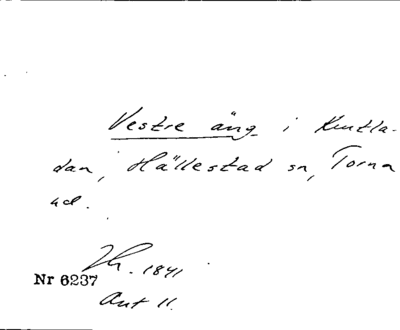 Vestre äng i Knutla-
dan, Hällestad sn, Torna
hd.
Th. 1841
Nr 6237
Ant 11.